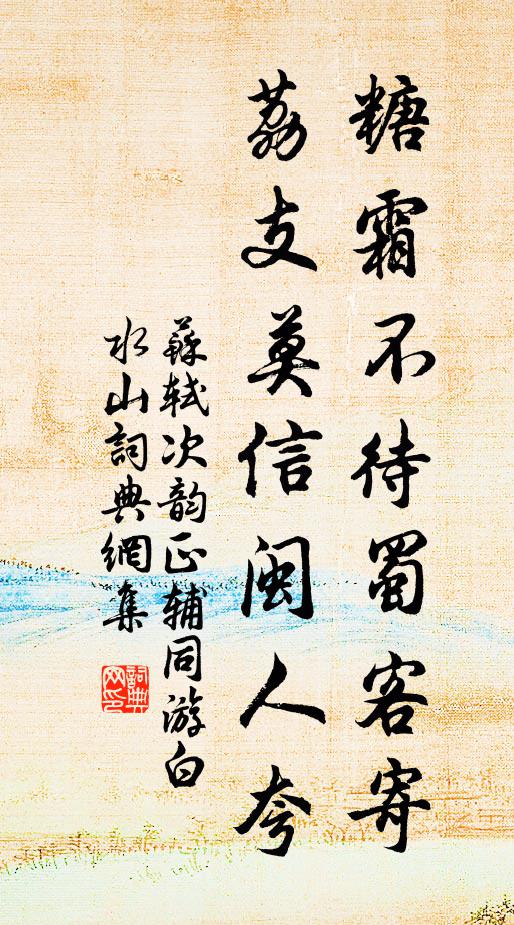 糖霜不待蜀客寄
荔支莫信闽人夸
蘇軾次韵正辅同游白
水山詞典網集
詞典网印